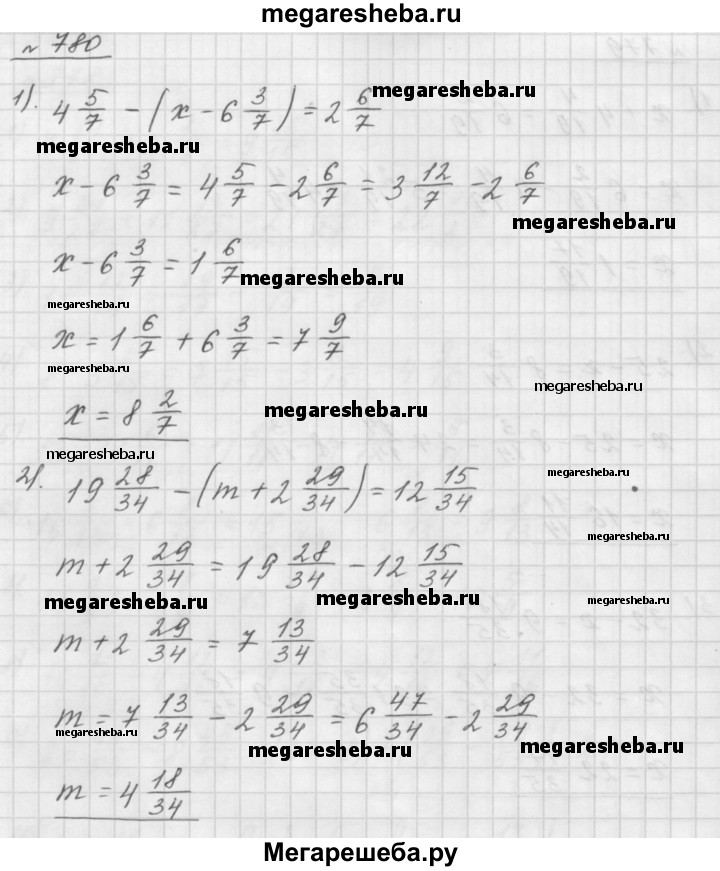 megaresheba.ru
№ 780
1). 4 5/7 - (x - 6 3/7) = 2 6/7 megaresheba.ru
megaresheba.ru
x - 6 3/7 = 4 5/7 - 2 6/7 = 3 12/7 - 2 6/7
megaresheba.ru
x - 6 3/7 = 1 6/7 megaresheba.ru
megaresheba.ru
x = 1 6/7 + 6 3/7 = 7 9/7
megaresheba.ru megaresheba.ru
x = 8 2/7 megaresheba.ru
megaresheba.ru
2). 19 28/34 - (m + 2 29/34) = 12 15/34 megaresheba.ru
megaresheba.ru
m + 2 29/34 = 19 28/34 - 12 15/34
megaresheba.ru megaresheba.ru megaresheba.ru
m + 2 29/34 = 7 13/34
m = 7 13/34 - 2 29/34 = 6 47/34 - 2 29/34
megaresheba.ru megaresheba.ru megaresheba.ru
m = 4 18/34
Мегарешеба.ру